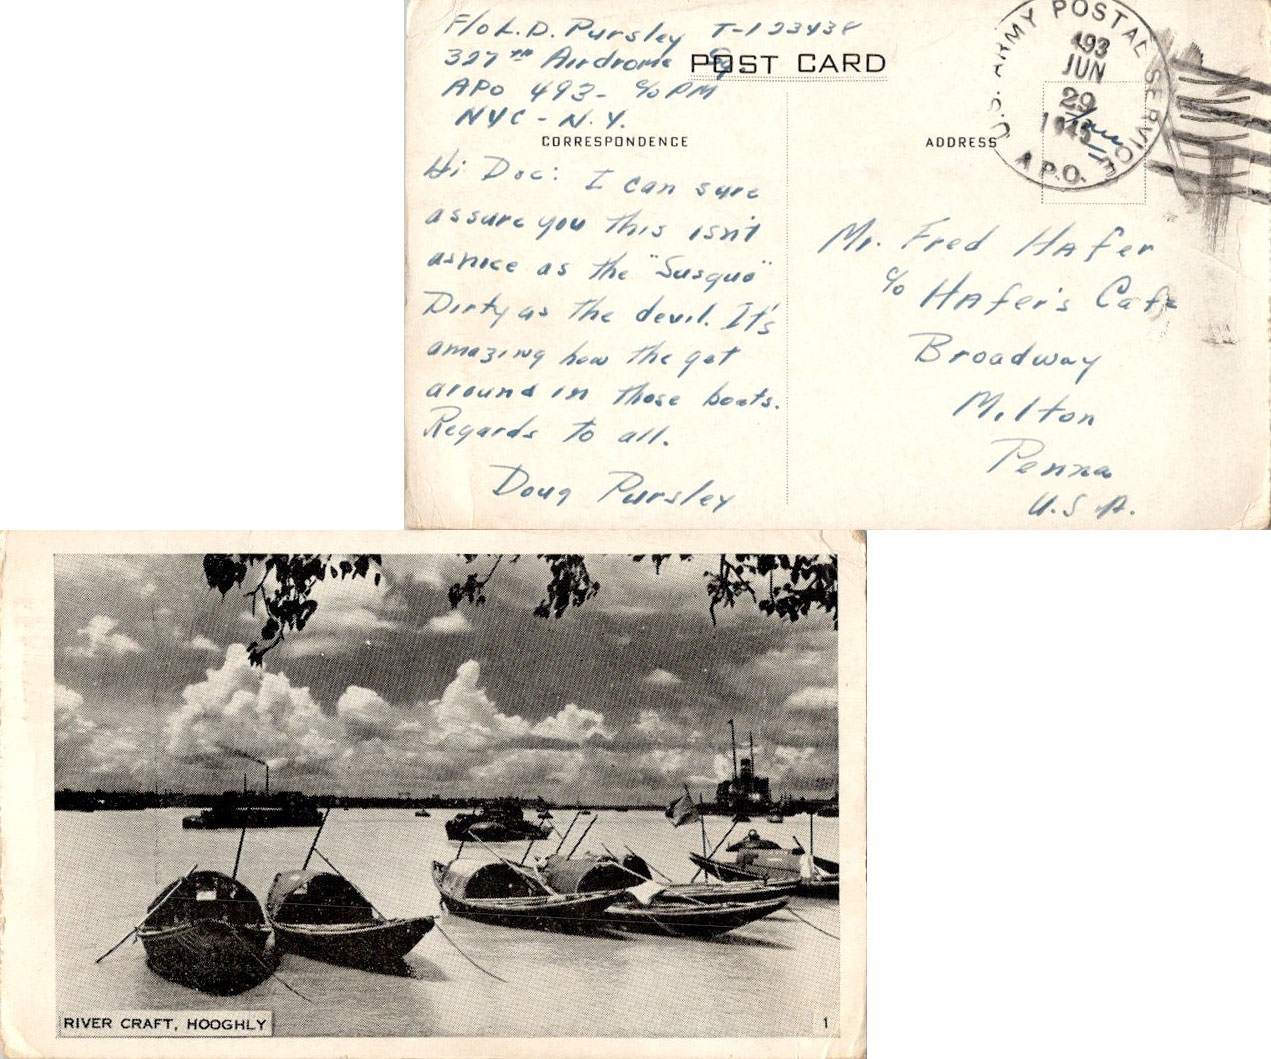 F/o L.D. Pursley T-123438
327th Airdrome Sq
APO 493- c/o PM
NYC - N.Y.
POST CARD
CORRESPONDENCE
ADDRESS
U.S. ARMY POSTAL SERVICE
493
JUN
29
1945
A.P.O.
Hi Doc: I can sure
assure you this isn't
as nice as the "Susque"
Dirty as the devil. It's
amazing how the get
around in those boats.
Regards to all.
Doug Pursley
Mr. Fred HAfer
c/o HAfer's Cafe
Broadway
Milton
Penna
U.S.A.
RIVER CRAFT, HOOGHLY
1